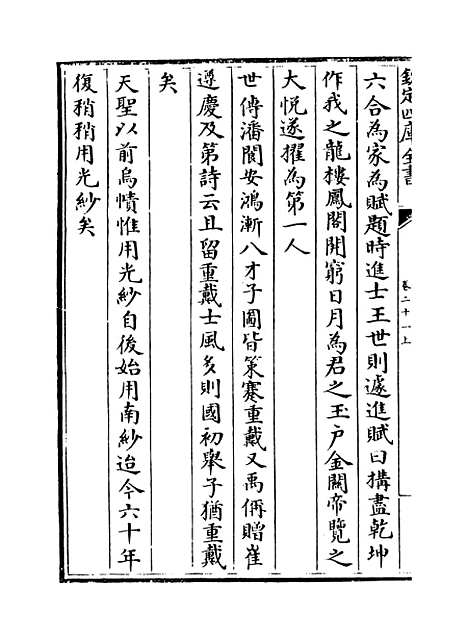 欽定四庫全書
卷二十一上
六合為家為賦題時進士王世則遽進賦曰搆盡乾坤
作我之龍樓鳳閣開窮日月為君之玉户金闕帝覽之
大悦遂擢為第一人
世傳潘閬安鴻漸八才子圖皆策蹇重戴又禹偁贈崔
遵慶及第詩云且留重戴士風多則國初舉子猶重戴
矣
天聖以前烏幘惟用光紗自後始用南紗迨今六十年
復稍稍用光紗矣